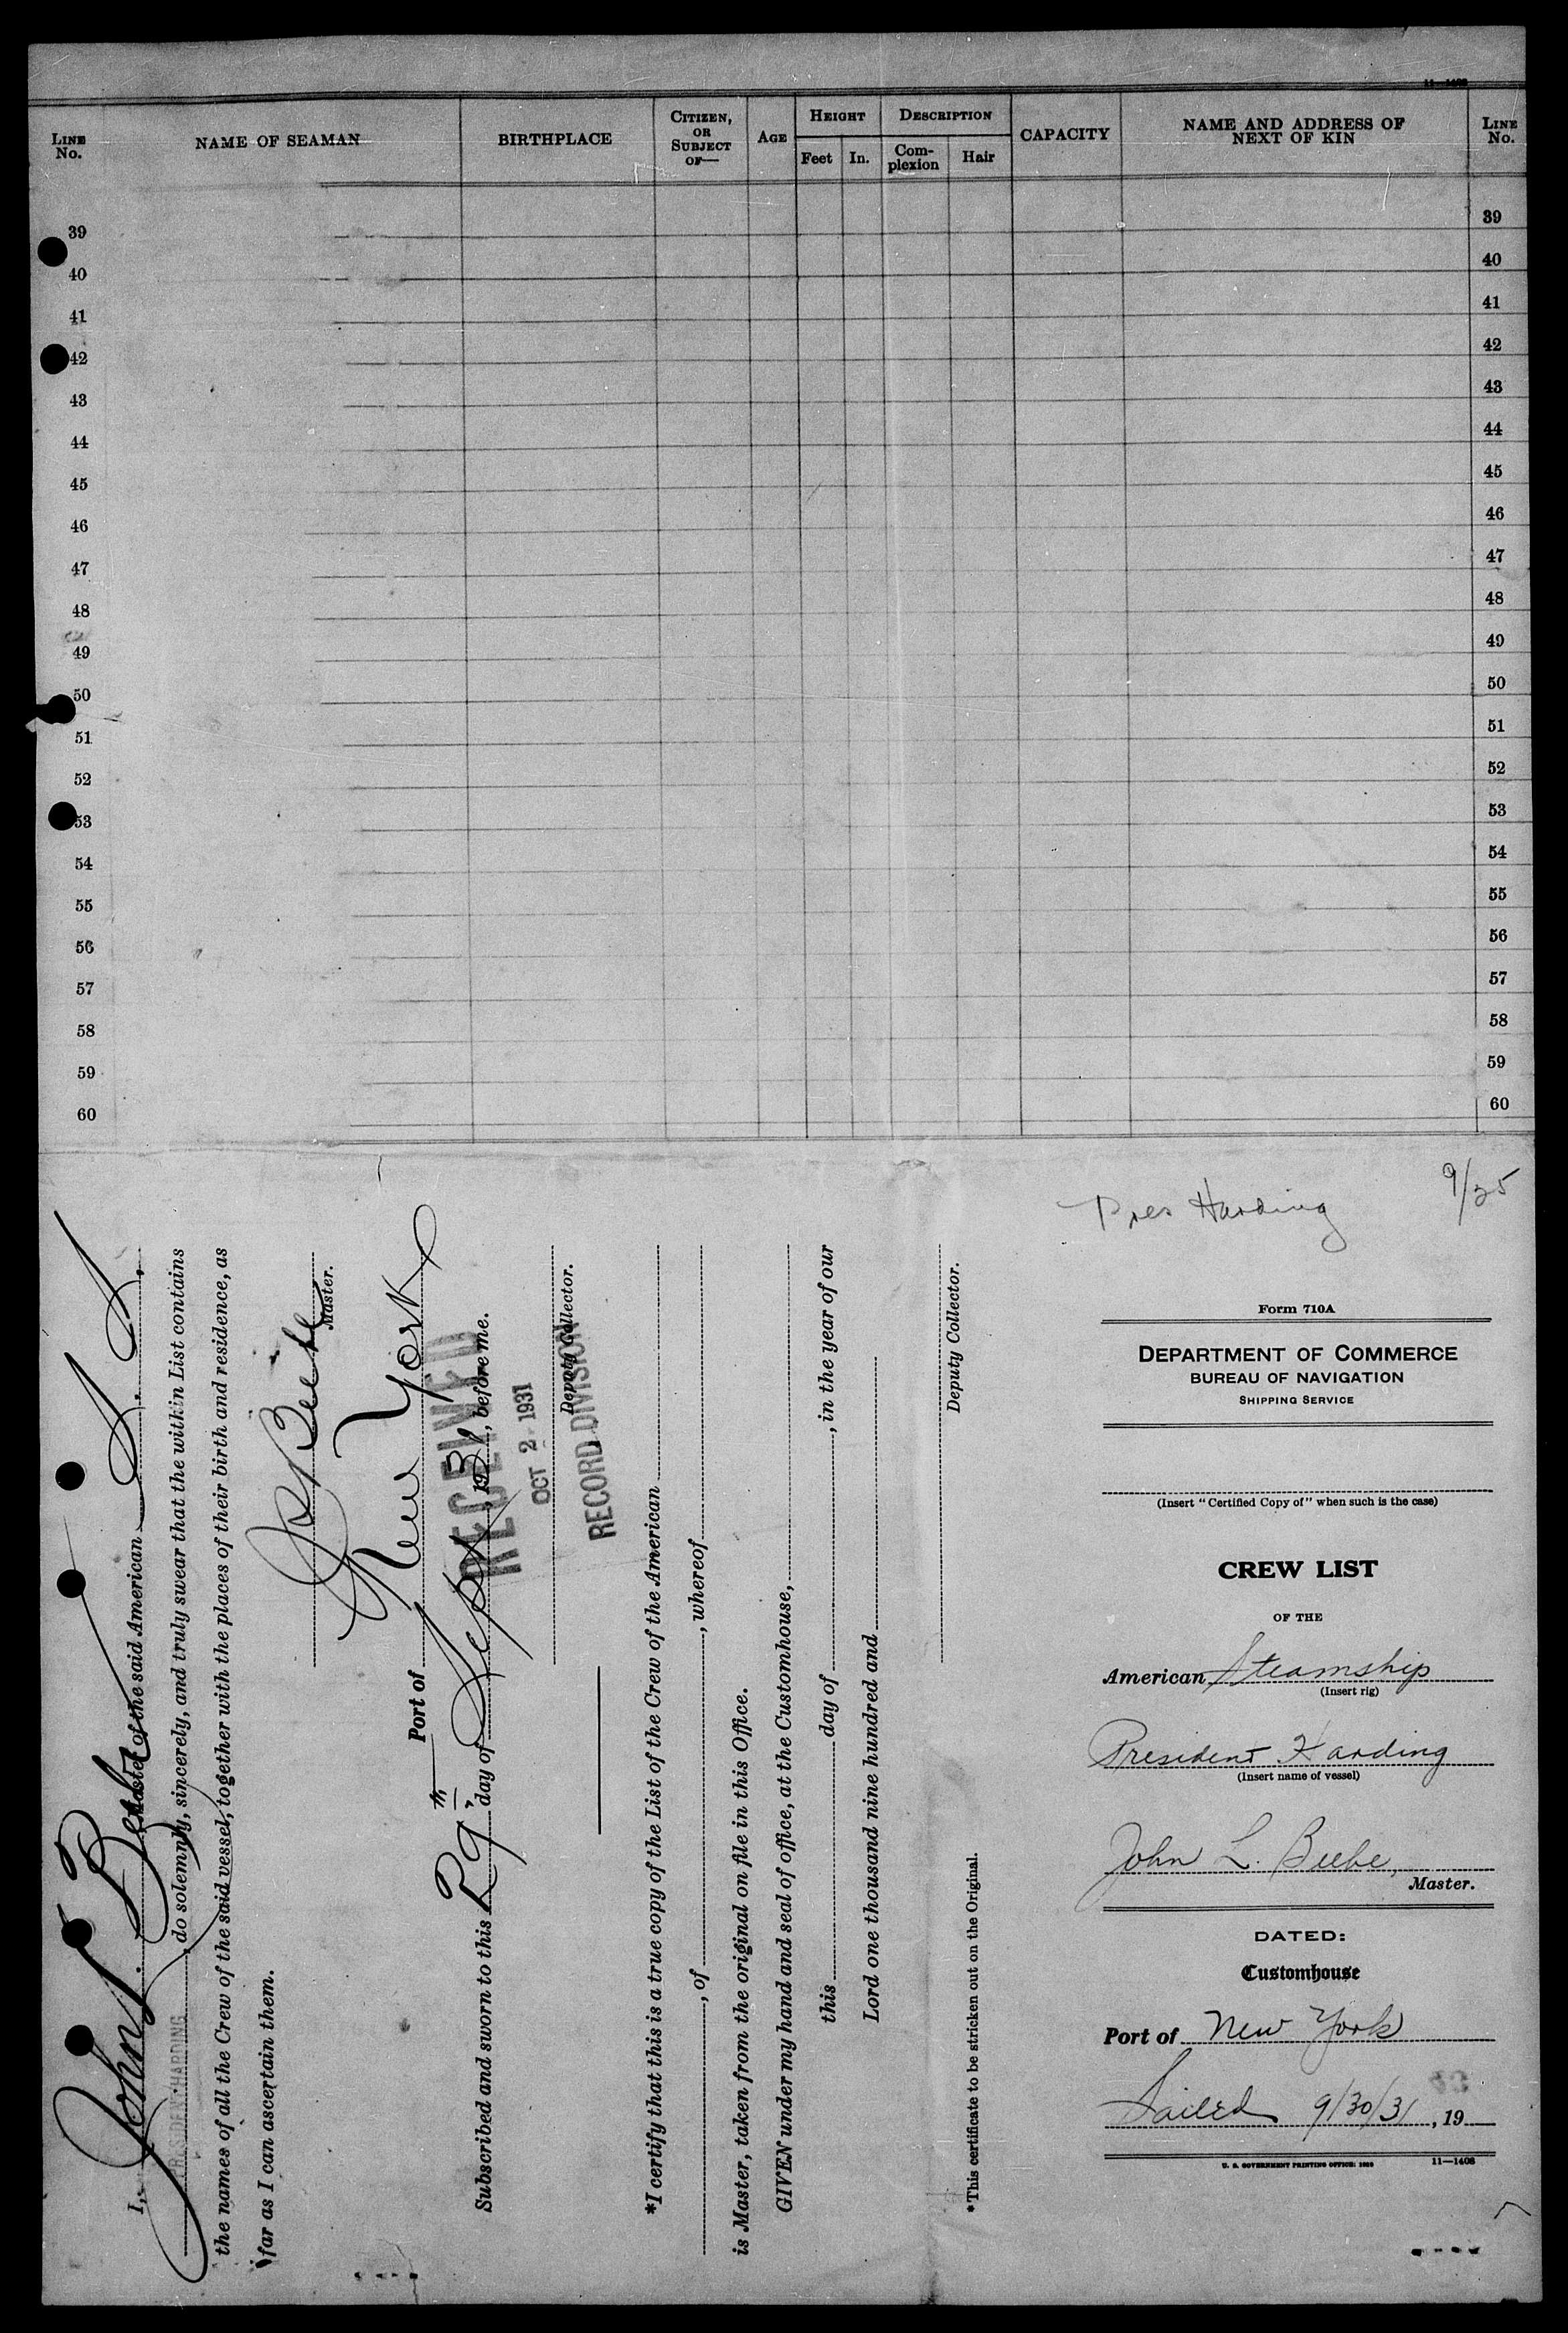 11—1408
LINE No. NAME OF SEAMAN BIRTHPLACE CITIZEN, OR SUBJECT OF— AGE HEIGHT Feet In. DESCRIPTION Complexion Hair CAPACITY NAME AND ADDRESS OF NEXT OF KIN LINE No.
39 39
40 40
41 41
42 42
43 43
44 44
45 45
46 46
47 47
48 48
49 49
50 50
51 51
52 52
53 53
54 54
55 55
56 56
57 57
58 58
59 59
60 60
I, John L. Beebe Master of the said American S. S.
PRESIDENT HARDING, do solemnly, sincerely, and truly swear that the within List contains
the names of all the Crew of the said vessel, together with the places of their birth and residence, as
far as I can ascertain them.
Beebe
Master.
Port of New York
Subscribed and sworn to this 29th day of Sept, 1931, before me.
RECEIVED
OCT 2 1931
RECORD DIVISION
Deputy Collector.
*I certify that this is a true copy of the List of the Crew of the American
, of , whereof
is Master, taken from the original on file in this Office.
GIVEN under my hand and seal of office, at the Customhouse,
this day of , in the year of our
Lord one thousand nine hundred and
Deputy Collector.
*This certificate to be stricken out on the Original.
Pres Harding
Form 710A
DEPARTMENT OF COMMERCE
BUREAU OF NAVIGATION
SHIPPING SERVICE
(Insert "Certified Copy of" when such is the case)
CREW LIST
OF THE
American Steamship
(Insert rig)
President Harding
(Insert name of vessel)
John L. Beebe,
Master.
DATED:
Customhouse
Port of New York
Sailed 9/30/31, 19
U. S. GOVERNMENT PRINTING OFFICE: 11—1408